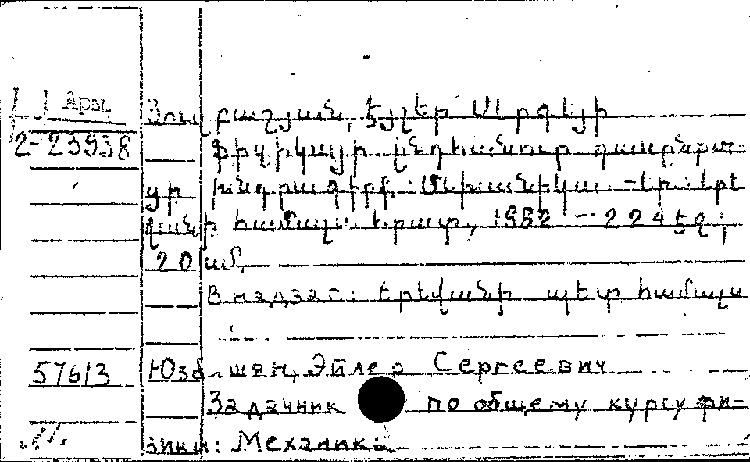 Арм
2-23938
Յուզբաշյան, Էյլեր Սերգեյի
Ֆիզիկայի ընդհանուր դասընթա-
ցի խնդրագիրք: Մեխանիկա. - Եր.: Երև
վանի համալս. հրատ., 1982 - 224 էջ;
20 սմ.
В надзаг.: Երևանի պետ համալս
57613
Юзбашян, Эйлер Сергеевич
Задачник по общему курсу фи-
зики: Механика.